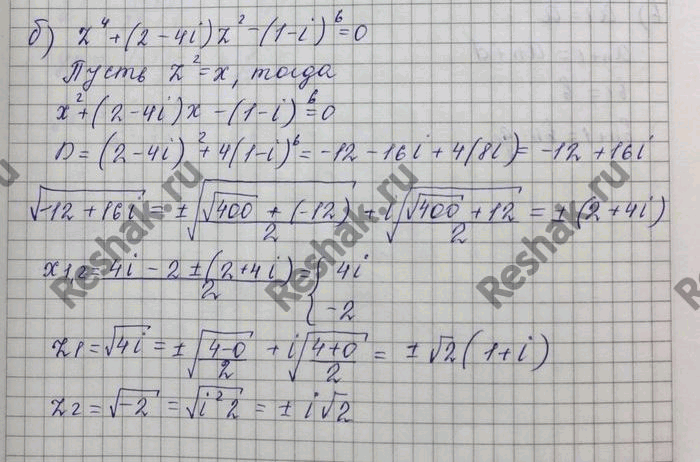 б) z⁴+(2-4i)z²-(1-i)⁶=0
Пусть z²=x, тогда
x²+(2-4i)x-(1-i)⁶=0
D=(2-4i)²+4(1-i)⁶=-12-16i+4(8i)=-12+16i
√(-12+16i)=±√((√400+(-12))/2)+i√((√400+12)/2)=±(2+4i)
x₁₂=(4i-2±(2+4i))/2={4i
{-2
z₁=√(4i)=±√((4-0)/2)+i√((4+0)/2)=±√2(1+i)
z₂=√(-2)=√(i²2)=±i√2
Reshak.ru
Reshak.ru
Reshak.ru